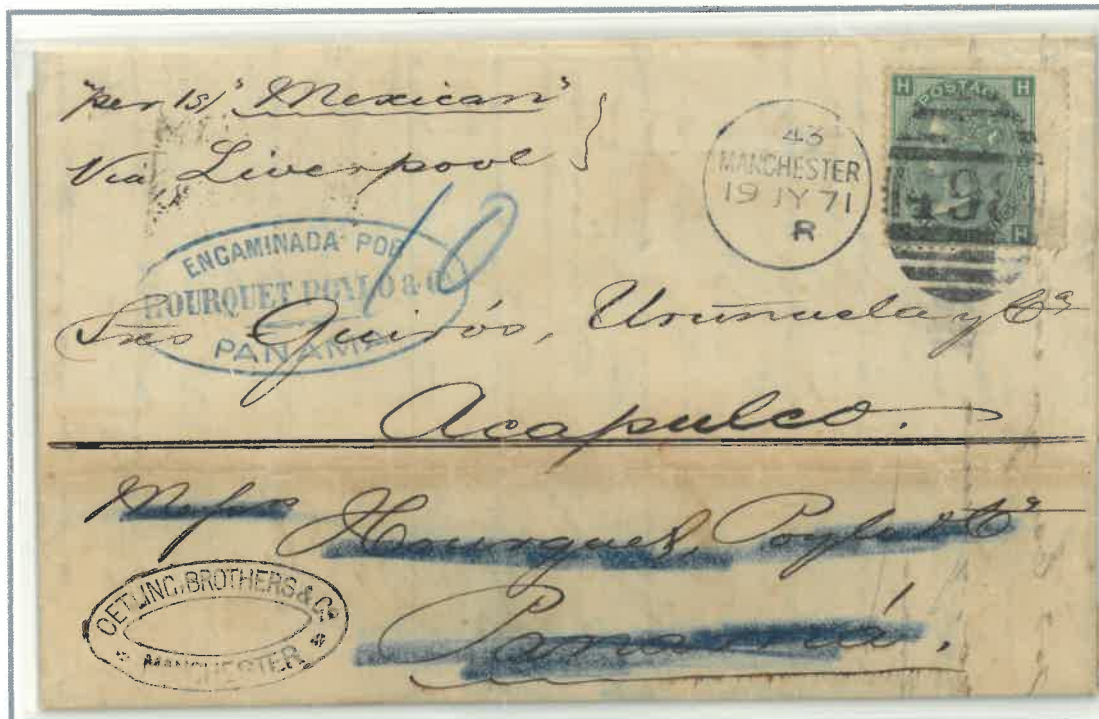 "per ss "Mexican"
Via Liverpool
43
MANCHESTER
19 JY 71
R
H H
POSTAGE
498
H
10
ENCAMINADA POR
HOURQUET POYLO & Cº
PANAMA
Sres Quirós, Uruñuela y Cª
Acapulco.
Hourquet, Poylo & Cª
Panamá.
OETLING, BROTHERS & Cº
MANCHESTER